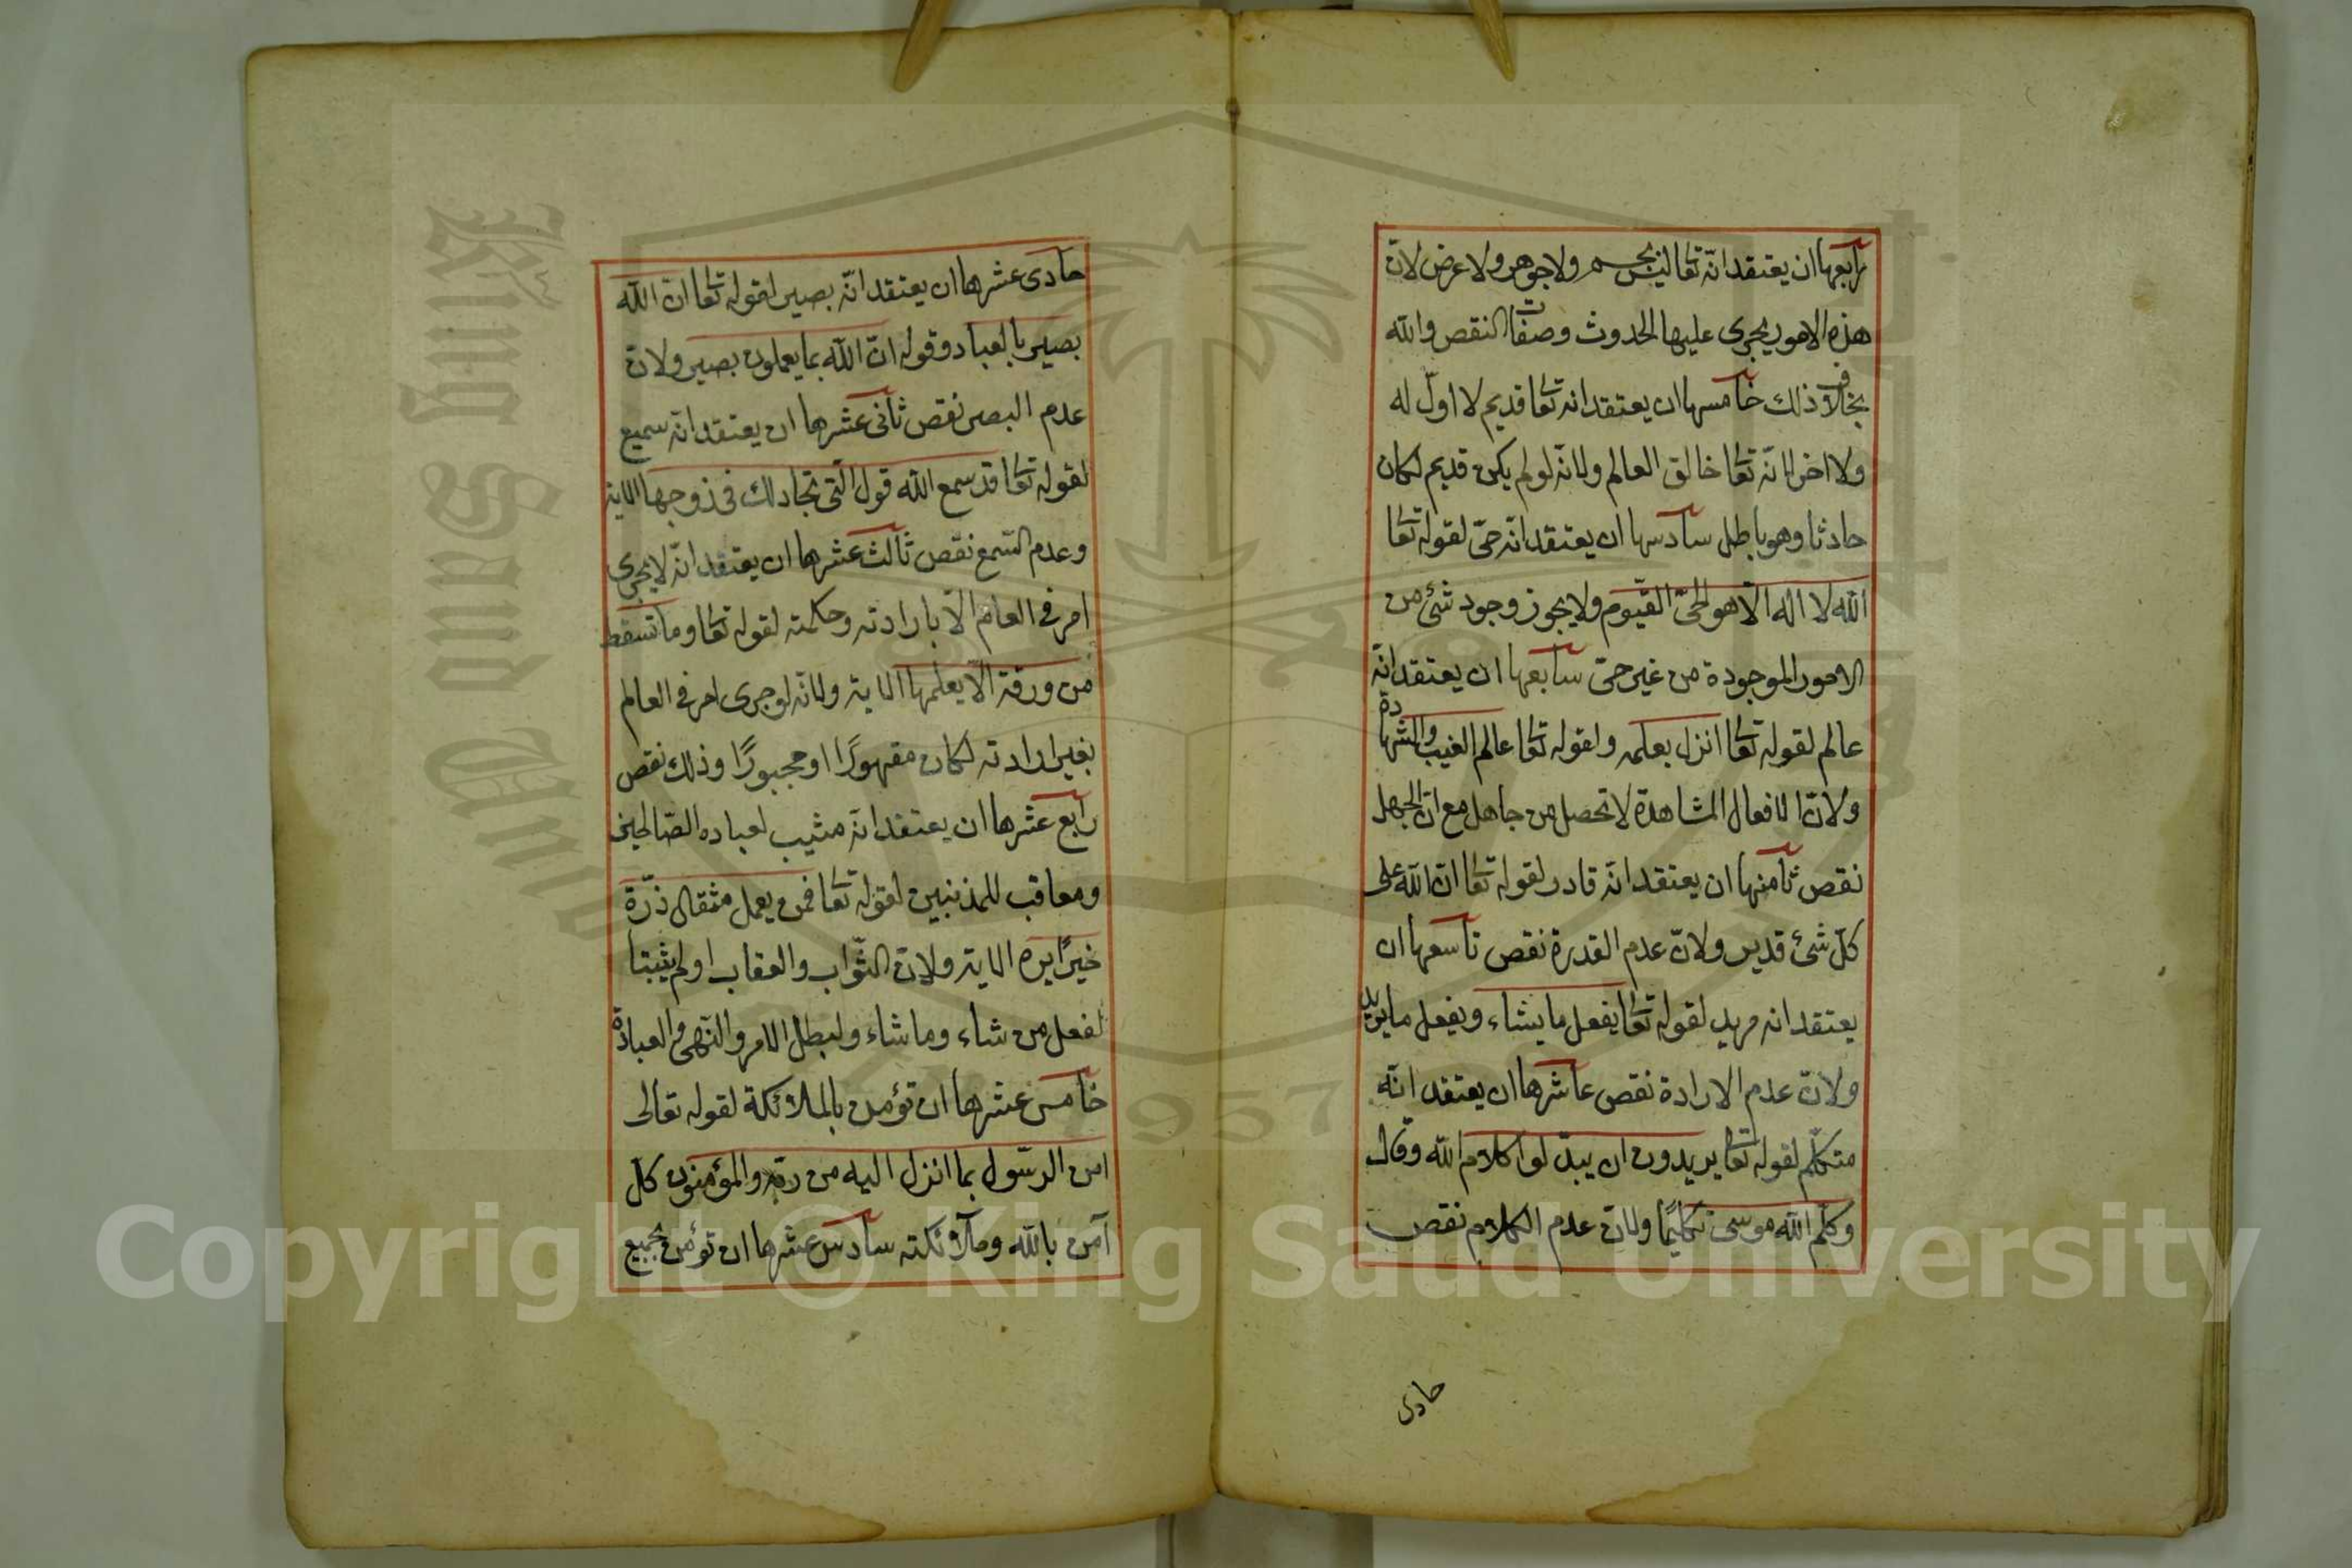 رابعها ان يعتقد انّه تعا ليس بجسم ولا جوهر ولا عرض لانّ
هذه الامور يجرى عليها الحدوث وصفات النقص والله
بخلاف ذلك خامسها ان يعتقد انه تعا قديم لا اوّل له
ولا اخر لانّه تعا خالق العالم ولانّه لو لم يكن قديم لكان
حادثا وهو باطل سادسها ان يعتقد انّه حىّ لقوله تعا
الله لا اله الّا هو الحىّ القيّوم ولا يجوز وجود شئ من
الامور الموجودة من غير حىّ سابعها ان يعتقد انّه
عالم لقوله تعا انزل بعلمه ولقوله تعا عالم الغيب والشهادة
ولانّ الافعال المشاهدة لا تحصل من جاهل مع انّ الجهل
نقص ثامنها ان يعتقد انّه قادر لقوله تعا انّ الله على
كلّ شئ قدير ولانّ عدم القدرة نقص تاسعها ان
يعتقد انه مريد لقوله تعا يفعل ما يشاء ويفعل ما يريد
ولانّ عدم الارادة نقص عاشرها ان يعتقد انّه
متكلّم لقوله تعا يريدون ان يبدّلوا كلام الله وقال
وكلّم الله موسى تكليمًا ولانّ عدم الكلام نقص
حادى
حادى عشرها ان يعتقد انّه بصير لقوله تعا انّ الله
بصير بالعباد وقوله انّ الله بما يعملون بصير ولانّ
عدم البصر نقص ثانى عشرها ان يعتقد انّه سميع
لقوله تعا قد سمع الله قول الّتى تجادلك فى زوجها الاية
وعدم السّمع نقص ثالث عشرها ان يعتقد انّه لا يجرى
امر فى العالم الّا بارادته وحكمته لقوله تعا وما تسقط
من ورقة الّا يعلمها الاية ولانّه لو جرى امر فى العالم
بغير ارادته لكان مقهورًا او مجبورًا وذلك نقص
رابع عشرها ان يعتقد انّه مثيب لعباده الصّالحين
ومعاقب للمذنبين لقوله تعا فمن يعمل مثقال ذرّة
خيرًا يره الاية ولانّ الثّواب والعقاب لو لم يثبتا
لفعل من شاء وما شاء ولبطل الامر والنّهى والعبادة
خامس عشرها ان تؤمن بالملائكة لقوله تعالى
امن الرسّول بما انزل اليه من ربّه والمؤمنون كلّ
آمن بالله وملآئكته سادس عشرها ان تؤمن بجميع
King Saud University
1957
Copyright © King Saud University